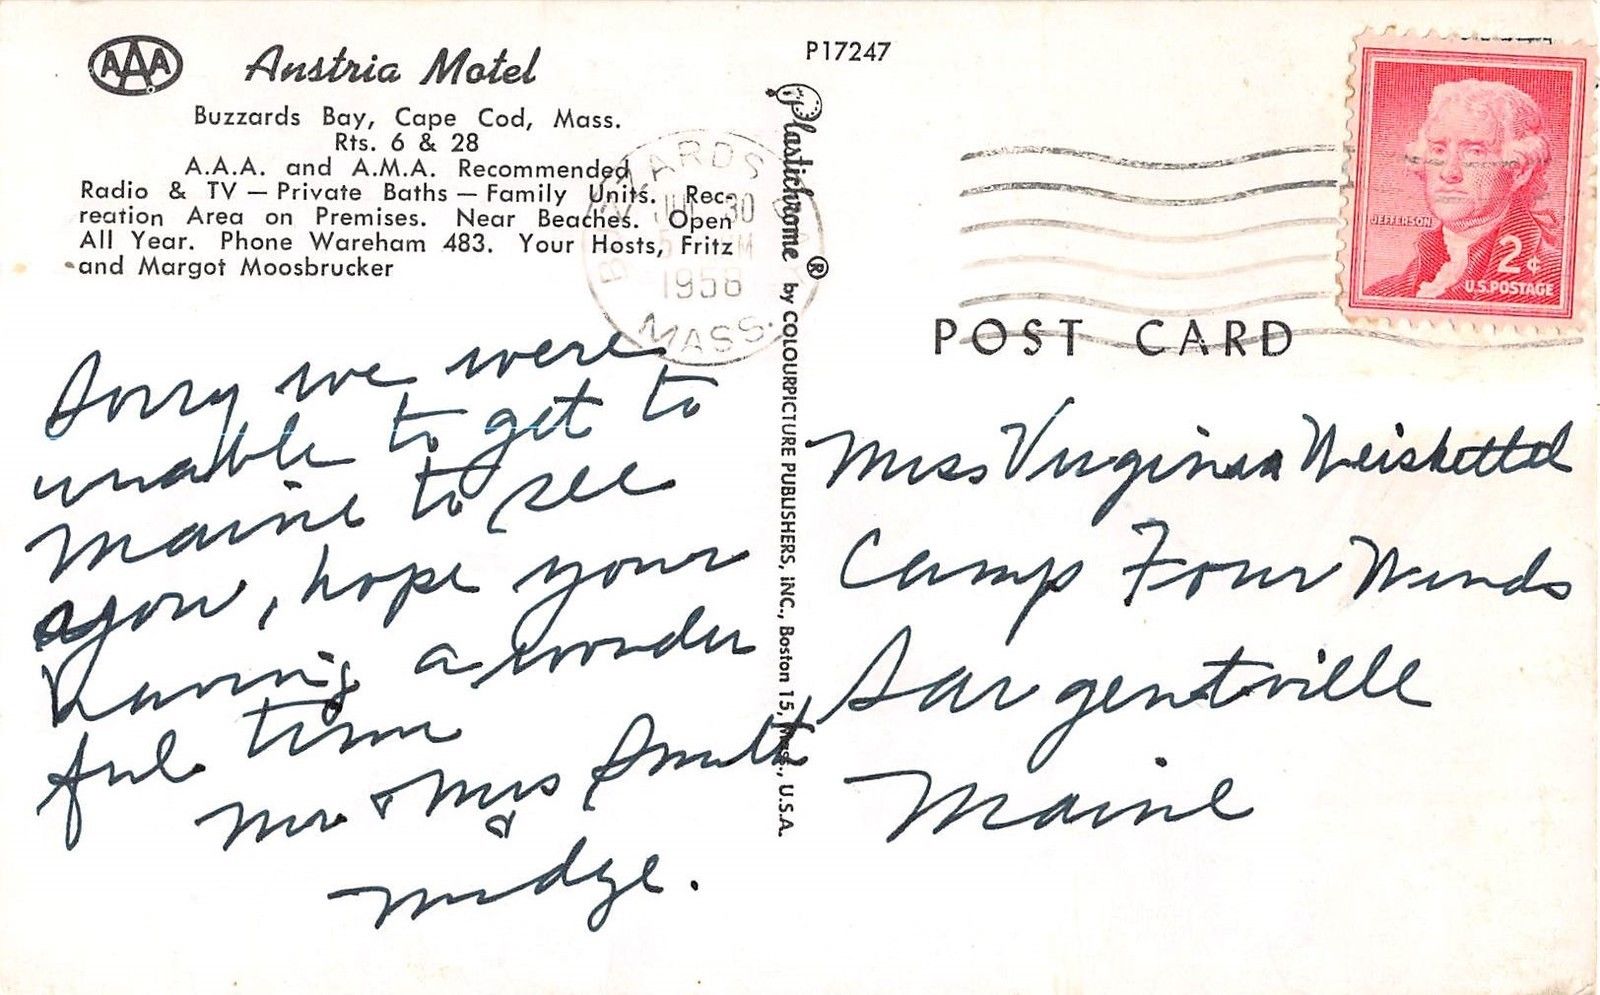 AAA
Anstria Motel
Buzzards Bay, Cape Cod, Mass.
Rts. 6 & 28
A.A.A. and A.M.A. Recommended
Radio & TV — Private Baths — Family Units. Rec-
reation Area on Premises. Near Beaches. Open
All Year. Phone Wareham 483. Your Hosts, Fritz
and Margot Moosbrucker
Sorry we were
unable to get to
Maine to see
you, hope your
having a wonder
ful time
Mr & Mrs Smith
&
Midge.
P17247
Plastichrome® by COLOURPICTURE PUBLISHERS, INC., Boston 15, Mass., U.S.A.
BUZZARDS BAY
JUL 30
1958
MASS.
JEFFERSON
2¢
U.S. POSTAGE
POST CARD
Miss Virginia
Camp Four Winds
Sargentville
Maine